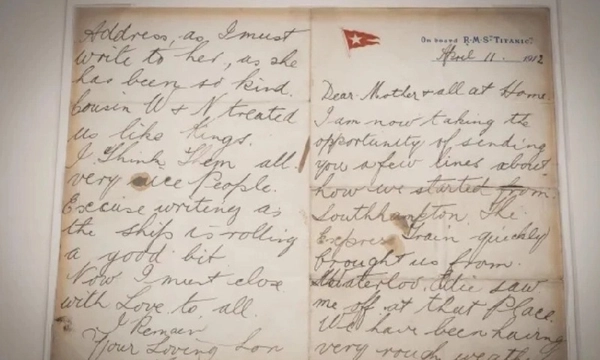 Address, as, I must
write to her, as she
has been so kind.
Cousin W & N treated
us like Kings.
I Think Them all.
very nice People.
Excuse writing as
the ship is rolling
a good bit
Now I must close
with Love to all.
I Remain
Your Loving Son
On board R.M.S. "Titanic".
April 11. 1912
Dear Mother & all at Home.
I am now taking the
opportunity of sending
you a few lines about
how we started from.
Southhampton. The
Express Train quickly
brought us from.
Waterloo. saw
me off at that Place.
We have been having
very rough